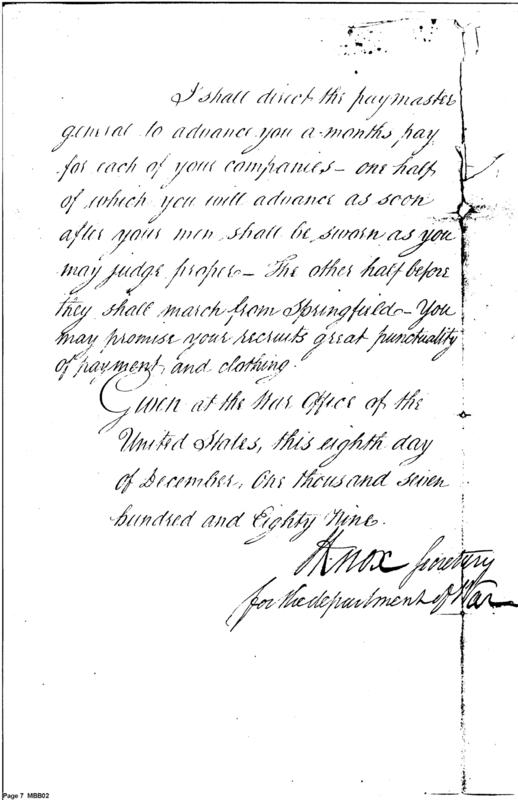 I shall direct the paymaster
general to advance you a months pay
for each of your companies – one half
of which you will advance as soon
after your men shall be sworn as you
may judge proper – The other half before
they shall march from Springfield – You
may promise your recruits great punctuality
of payment and clothing.
Given at the War Office of the
United States, this eighth day
of December, One thousand seven
hundred and Eighty Nine.
HKnox Secretary
for the department of War
Page 7 MBB02